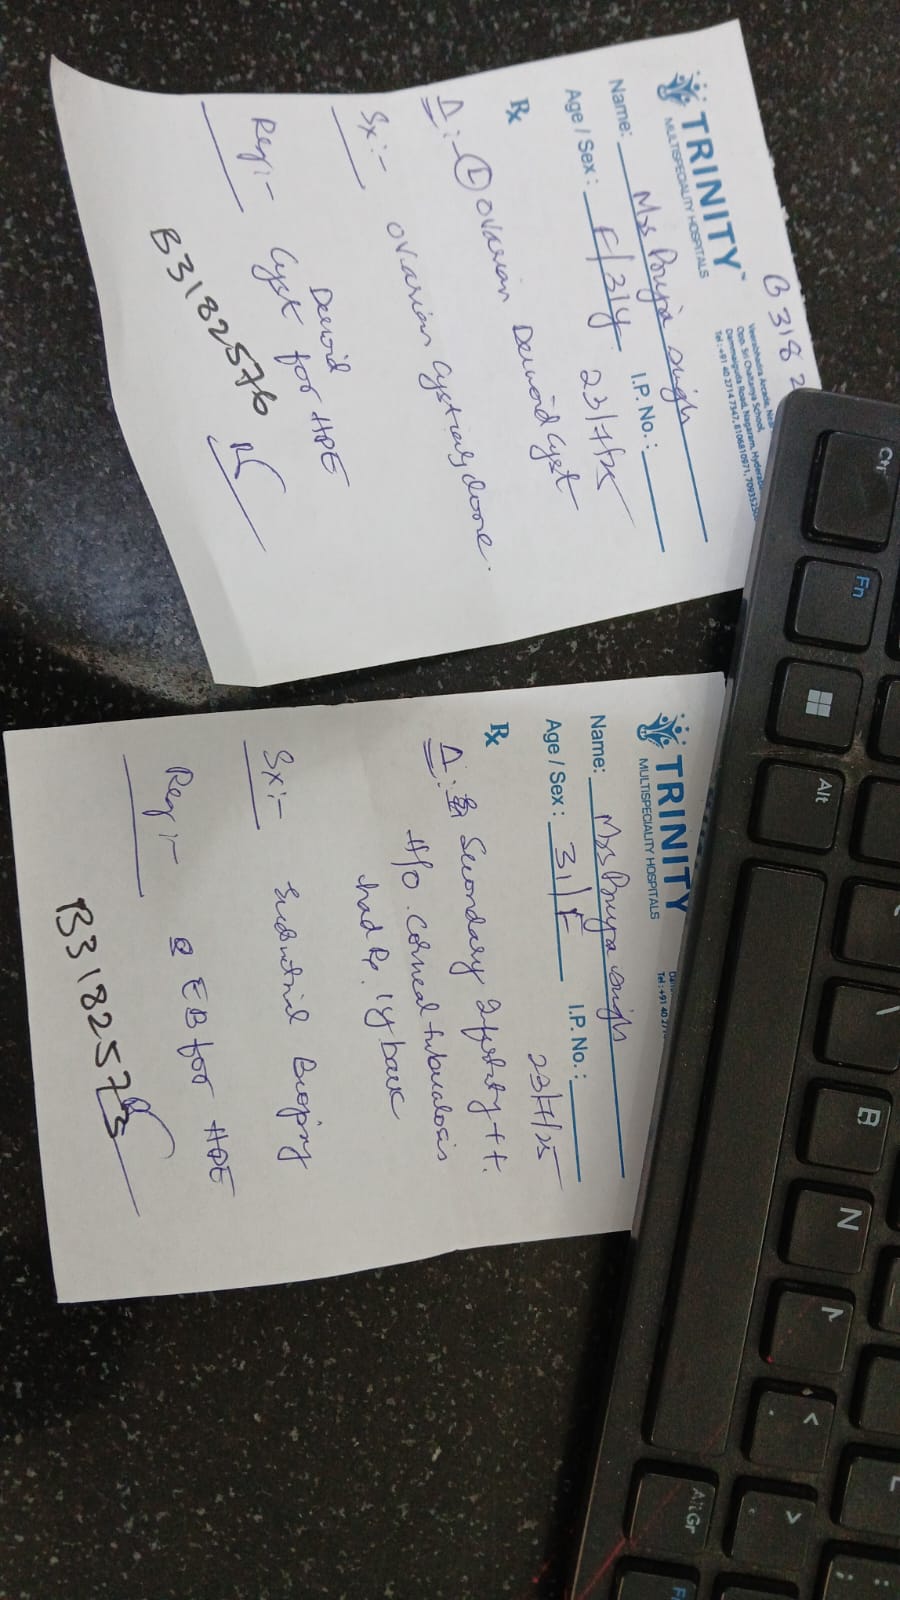 B 3182
TRINITY™
MULTISPECIALITY HOSPITALS
Veerabhadra Arcade, Near
Opp. Sri Chaitanya School,
Dammaiguda Road, Nagaram, Hyderabad
Tel : +91 40 2714 7347, 8106810971, 709352500
Name: Mrs Pooja Singh
Age / Sex : F/31y. I.P. No.:
23/7/25
Rx
Δ:- (L) ovarian Dermoid Cyst
Sx:- ovarian cystectomy done.
Req:- Dermoid
Cyst for HPE
B3182576
TRINITY
MULTISPECIALITY HOSPITALS
Tel : +91 40 27
Name: Mrs Pooja Singh
Age / Sex : 31/F I.P. No.:
23/7/25
Rx
Δ: Secondary Infertility ++.
H/o. Corneal tuberculosis
had Rx. 1y back
Sx:- Endometrial Biopsy
Req:- EB for HPE
B3182575
Ctrl
Fn
Alt
B
N
Alt Gr